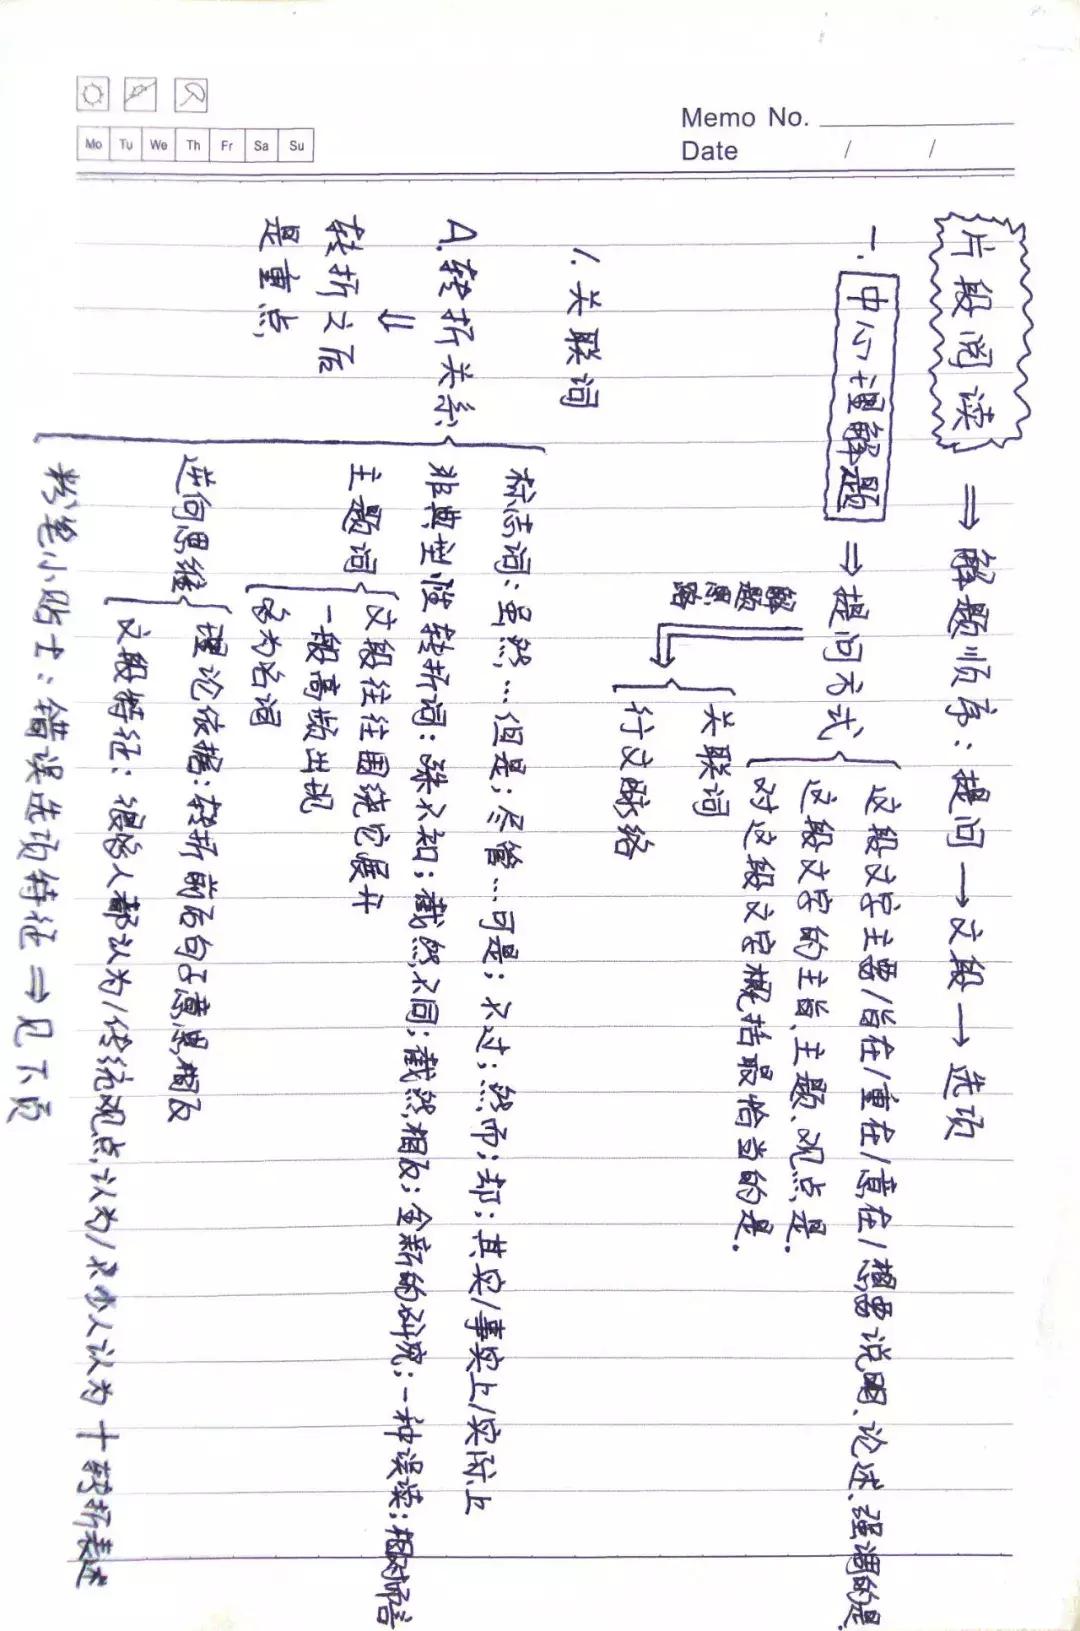 Memo No.
Date / /
Mo Tu We Th Fr Sa Su
片段阅读 ⇒ 解题顺序：提问→文段→选项
一. 中心理解题 ⇒ 提问方式
这段文字主要/旨在/重在/意在/想要说明、论述、强调的是.
这段文字的主旨、主题、观点是.
对这段文字概括最恰当的是.
解题思路
关联词
行文脉络
1. 关联词
A. 转折关系
⇓
转折之后
是重点
标志词：虽然…但是；尽管…可是；不过；然而；却；其实/事实上/实际上
非典型性转折词：殊不知；截然不同；截然相反；全新的研究；一种误读；相对而言
主题词
文段往往围绕它展开
一般高频出现
多为名词
逆向思维
理论依据：转折前后句子意思相反
文段特征：很多人都认为/传统观点认为/不少人认为 + 转折表述
粉笔小贴士：错误选项特征 ⇒ 见下页